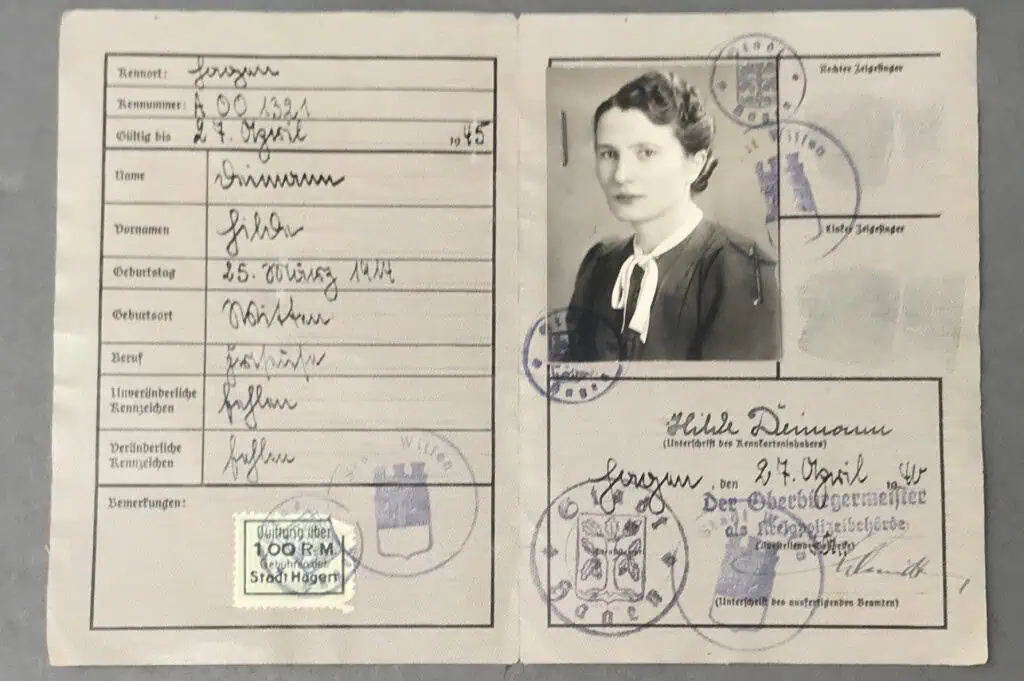 Kennort: Hagen
Kennummer: A 00 1321
Gültig bis 27. April 1945
Name Deimann
Vornamen Hilde
Geburtstag 25. März 1914
Geburtsort Witten
Beruf
Unveränderliche Kennzeichen fehlen
Veränderliche Kennzeichen fehlen
Bemerkungen:
Stadt Witten
Quittung über
1,00 R.M.
Gebühren der
Stadt Hagen
Stadt
Hagen
Witten
Rechter Zeigefinger
Linker Zeigefinger
Hagen
Hilde Deimann
(Unterschrift des Kennkarteninhabers)
Hagen, den 27. April 1940
Der Oberbürgermeister
als Kreispolizeibehörde
(Ausstellende Behörde)
Stadt
Hagen
(Unterschrift des ausfertigenden Beamten)